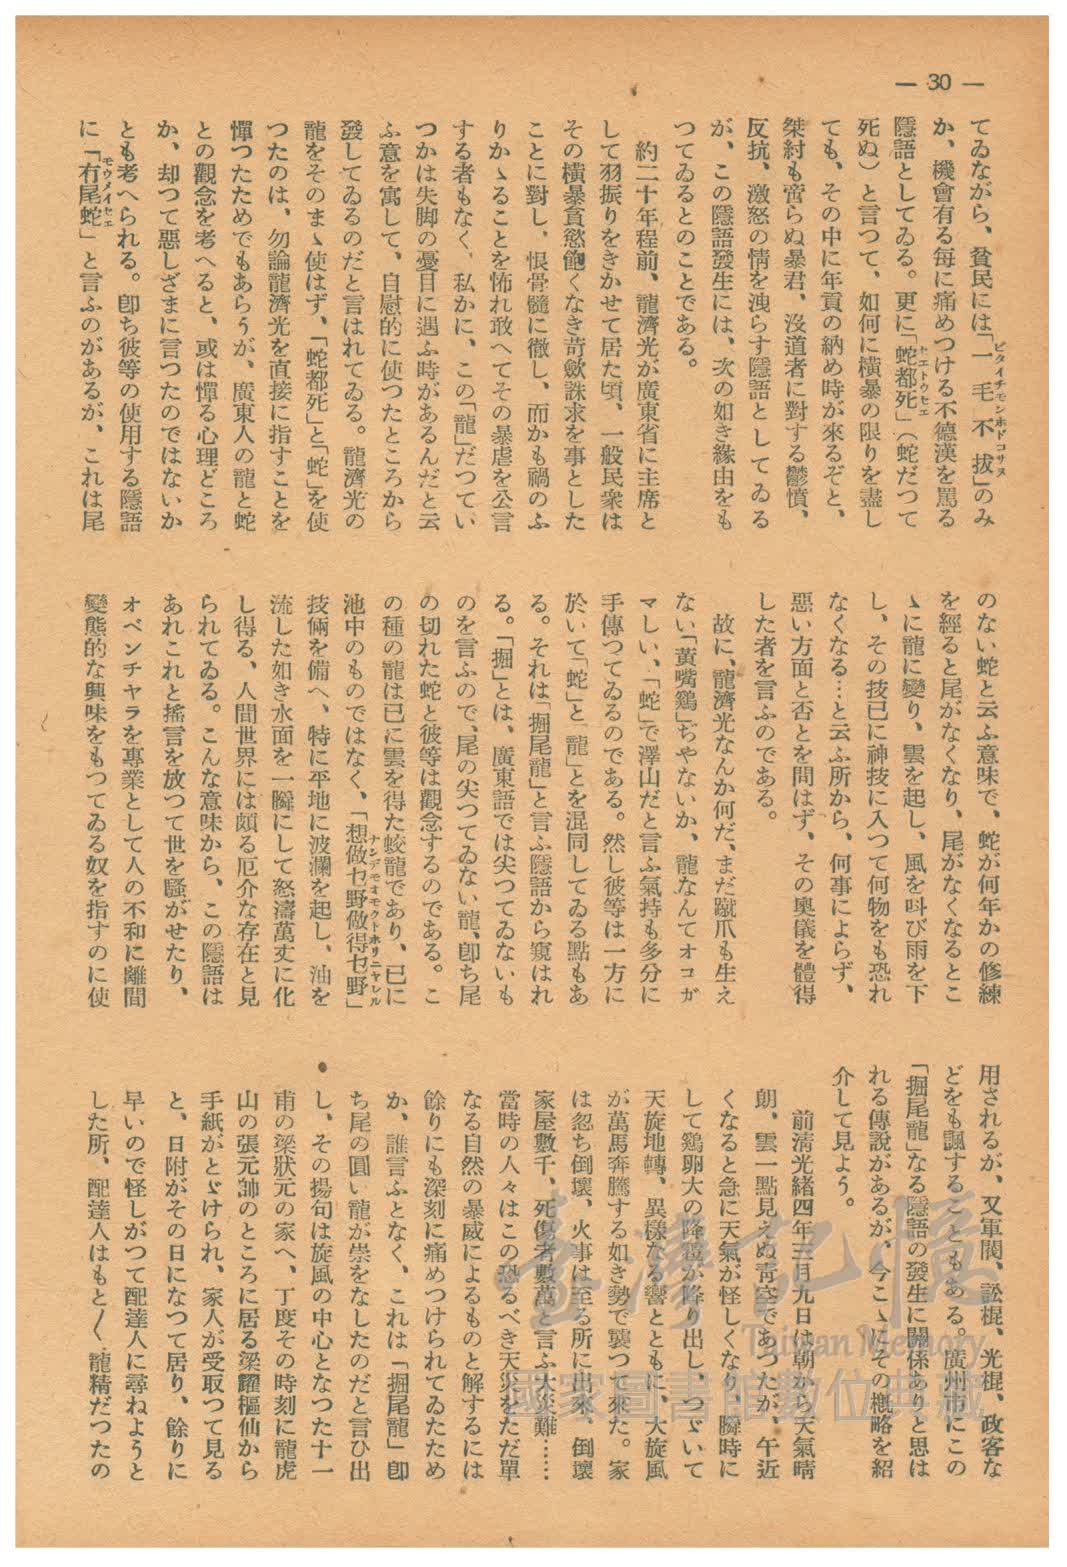 — 30 —
てゐながら、貧民には「一毛不拔」のみ
ピタイチモンホドコサヌ
か、機會有る每に痛めつける不德漢を罵る
隱語としてゐる。更に「蛇都死」(蛇だつて
セエトウセエ
死ぬ)と言つて、如何に橫暴の限りを盡し
ても、その中に年貢の納め時が來るぞと、
桀紂も啻らぬ暴君、沒道者に對する鬱憤、
反抗、激怒の情を洩らす隱語としてゐる
が、この隱語發生には、次の如き緣由をも
つてゐるとのことである。
約二十年程前、龍濟光が廣東省に主席と
して羽振りをきかせて居た頃、一般民衆は
その橫暴貪慾飽くなき苛斂誅求を事とした
ことに對し、恨骨髓に徹し、而かも禍のふ
りかゝることを怖れ敢へてその暴虐を公言
する者もなく、私かに、この「龍」だつてい
つかは失脚の憂目に遇ふ時があるんだと云
ふ意を寓して、自慰的に使つたところから
發してゐるのだと言はれてゐる。龍濟光の
龍をそのまゝ使はず、「蛇都死」と「蛇」を使
つたのは、勿論龍濟光を直接に指すことを
憚つたためでもあらうが、廣東人の龍と蛇
との觀念を考へると、或は憚る心理どころ
か、却つて惡しざまに言つたのではないか
とも考へられる。卽ち彼等の使用する隱語
に「有尾蛇」と言ふのがあるが、これは尾
モウメイセエ
のない蛇と云ふ意味で、蛇が何年かの修練
を經ると尾がなくなり、尾がなくなるとこ
ゝに龍に變り、雲を起し、風を呌び雨を下
し、その技已に神技に入つて何物をも恐れ
なくなる…と云ふ所から、何事によらず、
惡い方面と否とを問はず、その奧儀を體得
した者を言ふのである。
故に、龍濟光なんか何だ、まだ蹴爪も生え
ない「黃嘴鷄」ぢやないか、龍なんてオコガ
マしい、「蛇」で澤山だと言ふ氣持も多分に
手傳つてゐるのである。然し彼等は一方に
於いて「蛇」と「龍」とを混同してゐる點もあ
る。それは「掘尾龍」と言ふ隱語から窺はれ
る。「掘」とは、廣東語では尖つてゐないも
のを言ふので、尾の尖つてゐない龍、卽ち尾
の切れた蛇と彼等は觀念するのである。こ
の種の龍は已に雲を得た蛟龍であり、已に
池中のものではなく、「想做乜野做得乜野」
ナンデモオモクトホリニヤレル
技倆を備へ、特に平地に波瀾を起し、油を
流した如き水面を一瞬にして怒濤萬丈に化
し得る、人間世界には頗る厄介な存在と見
られてゐる。こんな意味から、この隱語は
あれこれと搖言を放つて世を騷がせたり、
オベンチヤラを專業として人の不和に離間
變態的な興味をもつてゐる奴を指すのに使
用されるが、又軍閥、訟棍、光棍、政客な
どをも諷することもある。廣州市にこの
「掘尾龍」なる隱語の發生に關係ありと思は
れる傳說があるが、今こゝにその槪略を紹
介して見よう。
前淸光緖四年三月九日は朝から天氣晴
朗、雲一點見えぬ靑空であつたが、午近
くなると急に天氣が怪しくなり、瞬時に
して鷄卵大の降雹が降り出し、つゞいて
天旋地轉、異樣なる響とともに、大旋風
が萬馬奔騰する如き勢で襲つて來た。家
は忽ち倒壞、火事は至る所に出來、倒壞
家屋數千、死傷者數萬と言ふ大災難……
當時の人々はこの恐るべき天災をただ單
なる自然の暴威によるものと解するには
餘りにも深刻に痛めつけられてゐたため
か、誰言ふとなく、これは「掘尾龍」卽
ち尾の圓い龍が祟をなしたのだと言ひ出
し、その揚句は旋風の中心となつた十一
甫の梁狀元の家へ、丁度その時刻に龍虎
山の張元帥のところに居る梁耀樞仙から
手紙がとゞけられ、家人が受取つて見る
と、日附がその日になつて居り、餘りに
早いので怪しがつて配達人に尋ねようと
した所、配達人はもと〳〵龍精だつたの
臺灣記憶
Taiwan Memory
國家圖書館數位典藏